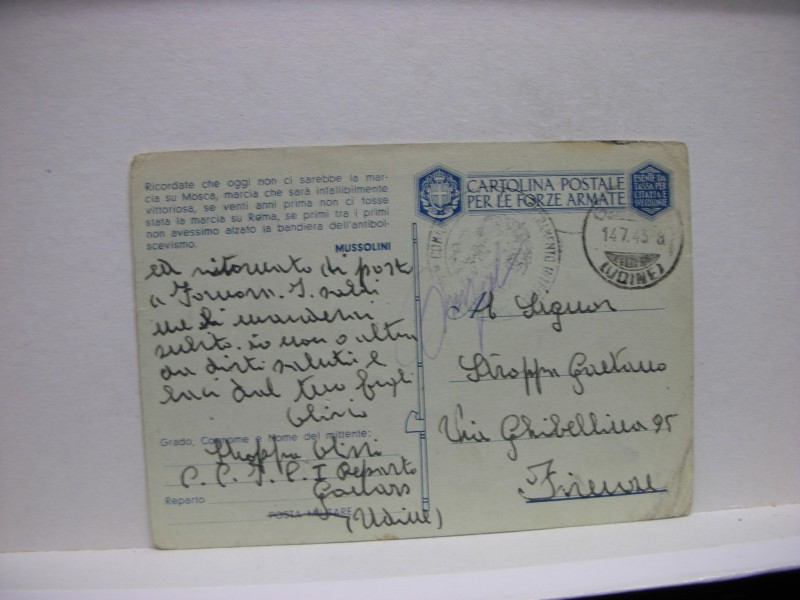 Ricordate che oggi non ci sarebbe la mar-
cia su Mosca, marcia che sarà infallibilmente
vittoriosa, se venti anni prima non ci fosse
stata la marcia su Roma, se primi tra i primi
non avessimo alzato la bandiera dell'antibol-
scevismo.
MUSSOLINI
ed ritornato di posto
a I soldi
me li manderai
subito. io non o altro
da dirti saluti e
baci dal tuo figli
Ulisse
Grado, Cognome e Nome del mittente:
Stroppa Ulisse
P. C. I Reparto
Reparto
POSTA MILITARE
(Udine)
CARTOLINA POSTALE
PER LE FORZE ARMATE
ESENTE DA
TASSA PER
L'ITALIA E
SPEDIZIONE
14.7.43 8
(UDINE)
Al Signor
Stroppa Gaetano
Via Ghibellina 95
Firenze